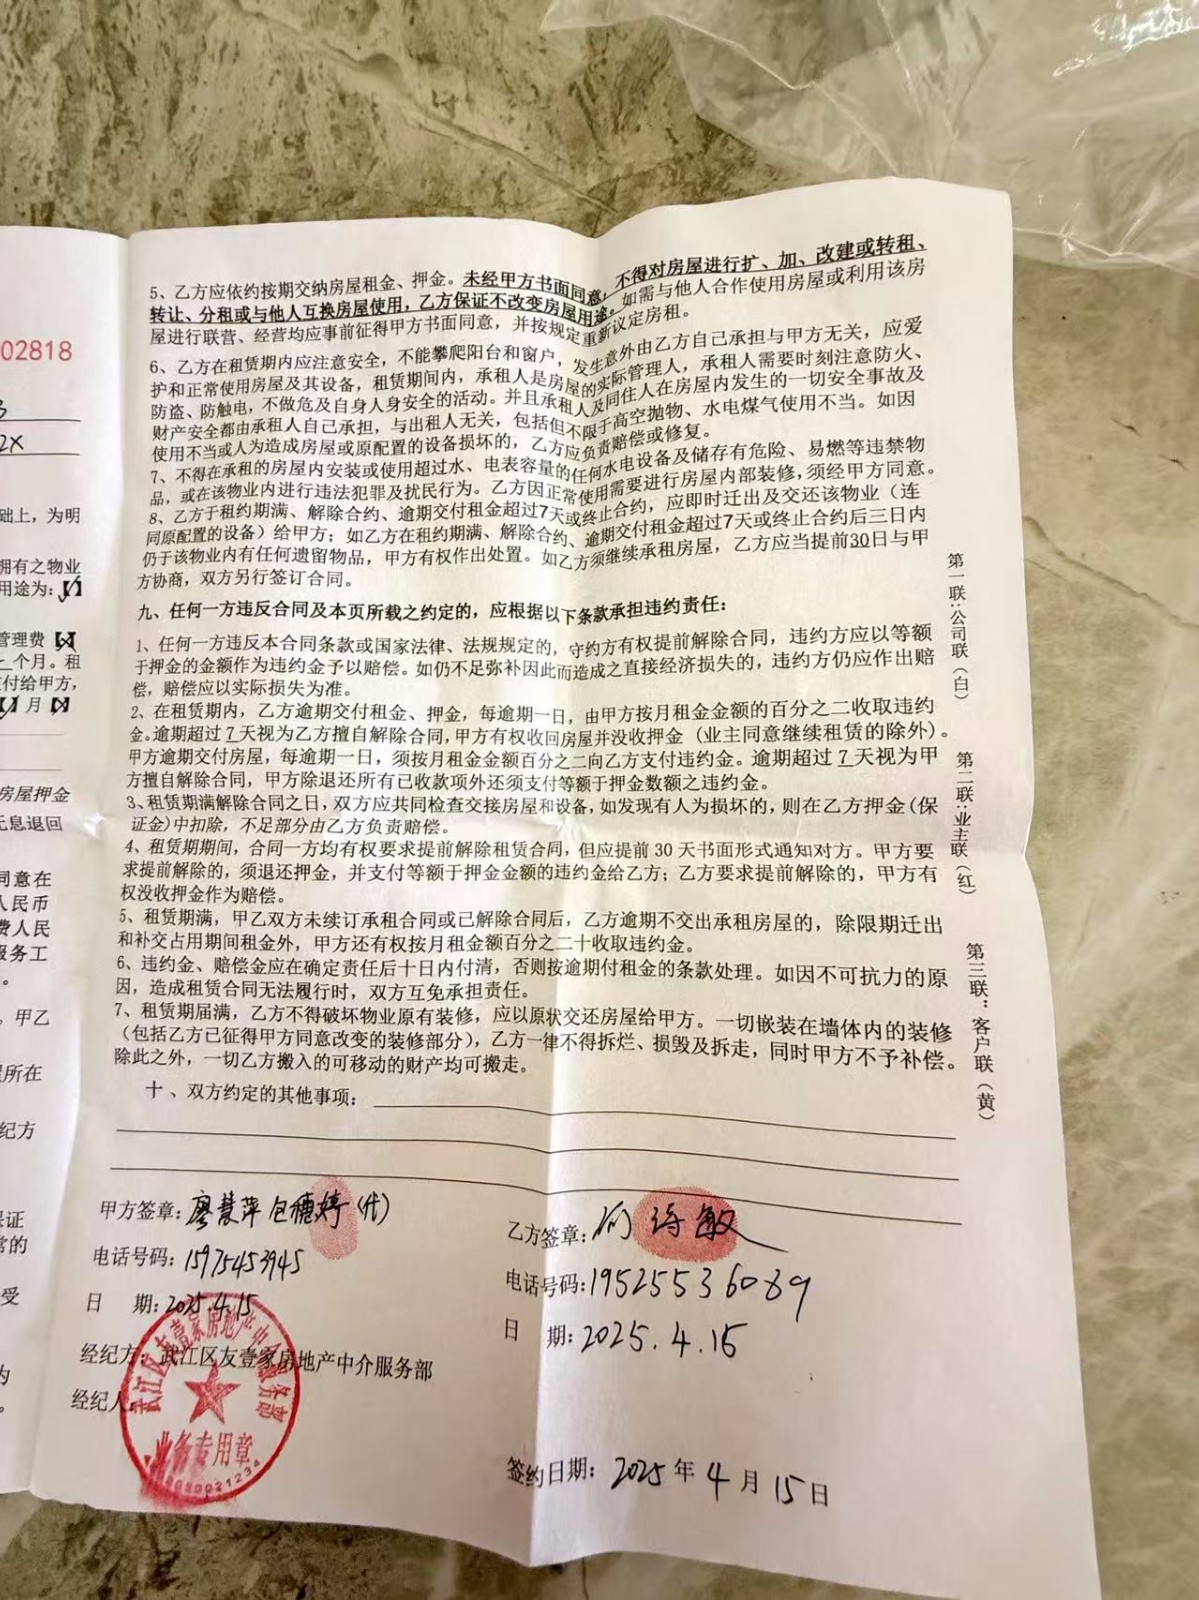 02818
2X
础上，为明
拥有之物业
用途为：【√】
管理费【×】
个月。租
付给甲方，
】月【×】
房屋押金
无息退回
同意在
人民币
费人民
服务工
。甲乙
所在
纪方
保证
常的
受
为
5、乙方应依约按期交纳房屋租金、押金。未经甲方书面同意，不得对房屋进行扩、加、改建或转租、
转让、分租或与他人互换房屋使用，乙方保证不改变房屋用途。如需与他人合作使用房屋或利用该房
屋进行联营、经营均应事前征得甲方书面同意，并按规定重新议定房租。
6、乙方在租赁期内应注意安全，不能攀爬阳台和窗户，发生意外由乙方自己承担与甲方无关，应爱
护和正常使用房屋及其设备，租赁期间内，承租人是房屋的实际管理人，承租人需要时刻注意防火、
防盗、防触电，不做危及自身人身安全的活动。并且承租人及同住人在房屋内发生的一切安全事故及
财产安全都由承租人自己承担，与出租人无关，包括但不限于高空抛物、水电煤气使用不当。如因
使用不当或人为造成房屋或原配置的设备损坏的，乙方应负责赔偿或修复。
7、不得在承租的房屋内安装或使用超过水、电表容量的任何水电设备及储存有危险、易燃等违禁物
品，或在该物业内进行违法犯罪及扰民行为。乙方因正常使用需要进行房屋内部装修，须经甲方同意。
8、乙方于租约期满、解除合约、逾期交付租金超过7天或终止合约，应即时迁出及交还该物业（连
同原配置的设备）给甲方；如乙方在租约期满、解除合约、逾期交付租金超过7天或终止合约后三日内
仍于该物业内有任何遗留物品，甲方有权作出处置。如乙方须继续承租房屋，乙方应当提前30日与甲
方协商，双方另行签订合同。
九、任何一方违反合同及本页所载之约定的，应根据以下条款承担违约责任：
1、任何一方违反本合同条款或国家法律、法规规定的，守约方有权提前解除合同，违约方应以等额
于押金的金额作为违约金予以赔偿。如仍不足弥补因此而造成之直接经济损失的，违约方仍应作出赔
偿，赔偿应以实际损失为准。
2、在租赁期内，乙方逾期交付租金、押金，每逾期一日，由甲方按月租金金额的百分之二收取违约
金。逾期超过7天视为乙方擅自解除合同，甲方有权收回房屋并没收押金（业主同意继续租赁的除外）。
甲方逾期交付房屋，每逾期一日，须按月租金金额百分之二向乙方支付违约金。逾期超过7天视为甲
方擅自解除合同，甲方除退还所有已收款项外还须支付等额于押金数额之违约金。
3、租赁期满解除合同之日，双方应共同检查交接房屋和设备，如发现有人为损坏的，则在乙方押金（保
证金）中扣除，不足部分由乙方负责赔偿。
4、租赁期期间，合同一方均有权要求提前解除租赁合同，但应提前30天书面形式通知对方。甲方要
求提前解除的，须退还押金，并支付等额于押金金额的违约金给乙方；乙方要求提前解除的，甲方有
权没收押金作为赔偿。
5、租赁期满，甲乙双方未续订承租合同或已解除合同后，乙方逾期不交出承租房屋的，除限期迁出
和补交占用期间租金外，甲方还有权按月租金额百分之二十收取违约金。
6、违约金、赔偿金应在确定责任后十日内付清，否则按逾期付租金的条款处理。如因不可抗力的原
因，造成租赁合同无法履行时，双方互免承担责任。
7、租赁期届满，乙方不得破坏物业原有装修，应以原状交还房屋给甲方。一切嵌装在墙体内的装修
（包括乙方已征得甲方同意改变的装修部分），乙方一律不得拆烂、损毁及拆走，同时甲方不予补偿。
除此之外，一切乙方搬入的可移动的财产均可搬走。
十、双方约定的其他事项：
甲方签章：廖慧萍 包穗婷（代）
电话号码：15975453945
日 期：2025.4.15
经纪方：武江区友壹家房地产中介服务部
经纪人
武江区友壹家房地产中介服务部
业务专用章
乙方签章：诗敏
电话号码：19525536089
日 期：2025.4.15
签约日期：2025年4月15日
第一联：公司联（白）
第二联：业主联（红）
第三联：客户联（黄）